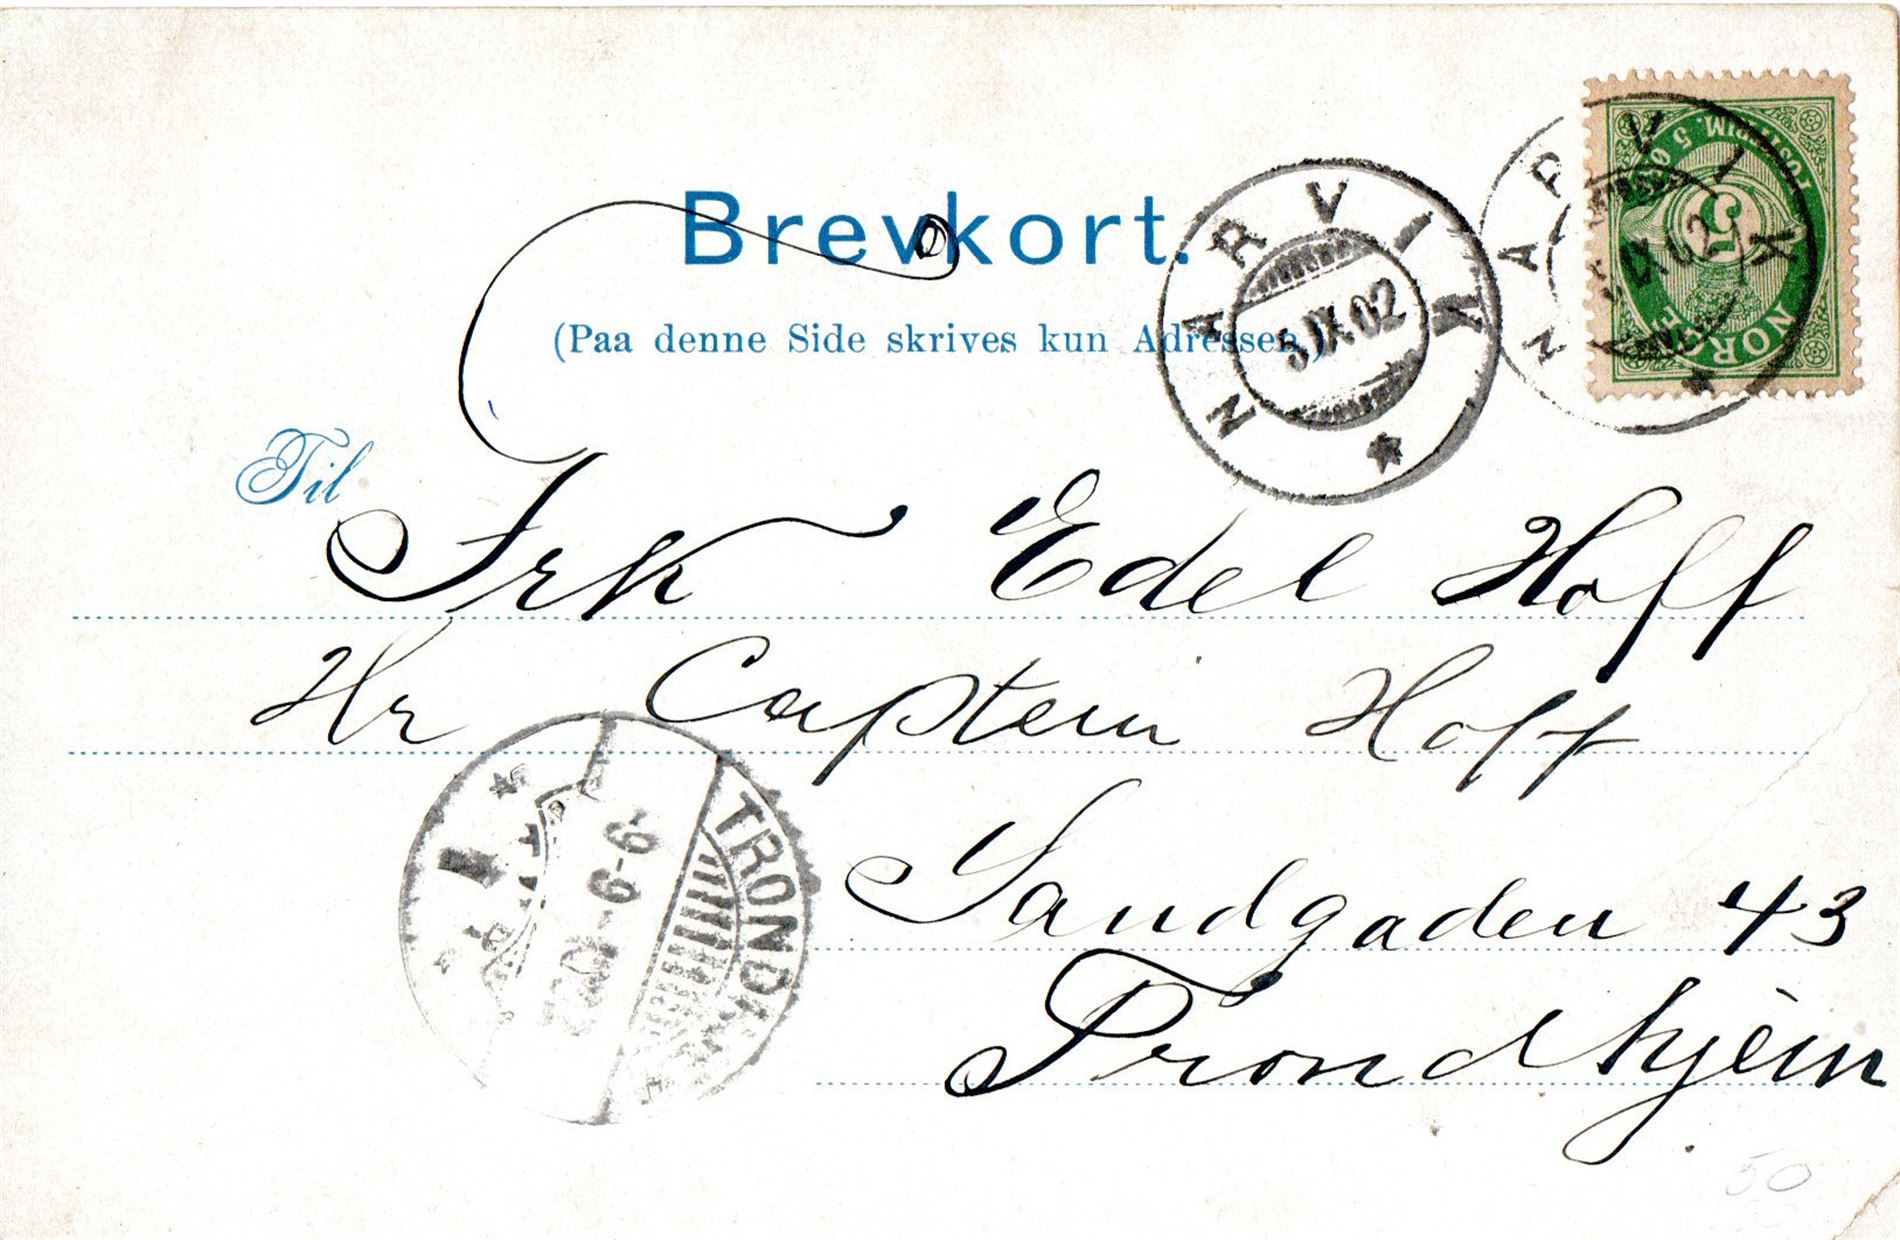 Brevkort.
(Paa denne Side skrives kun Adressen.)
NARVIK
5.IX.02
NARVIK
NORGE
POSTFRIM. 5 ØRE
5
Til
Frk Edel Hoff
Hr Captein Hoff
Sandgaden 43
Trondhjem
TRONDHJ
6-9-
50